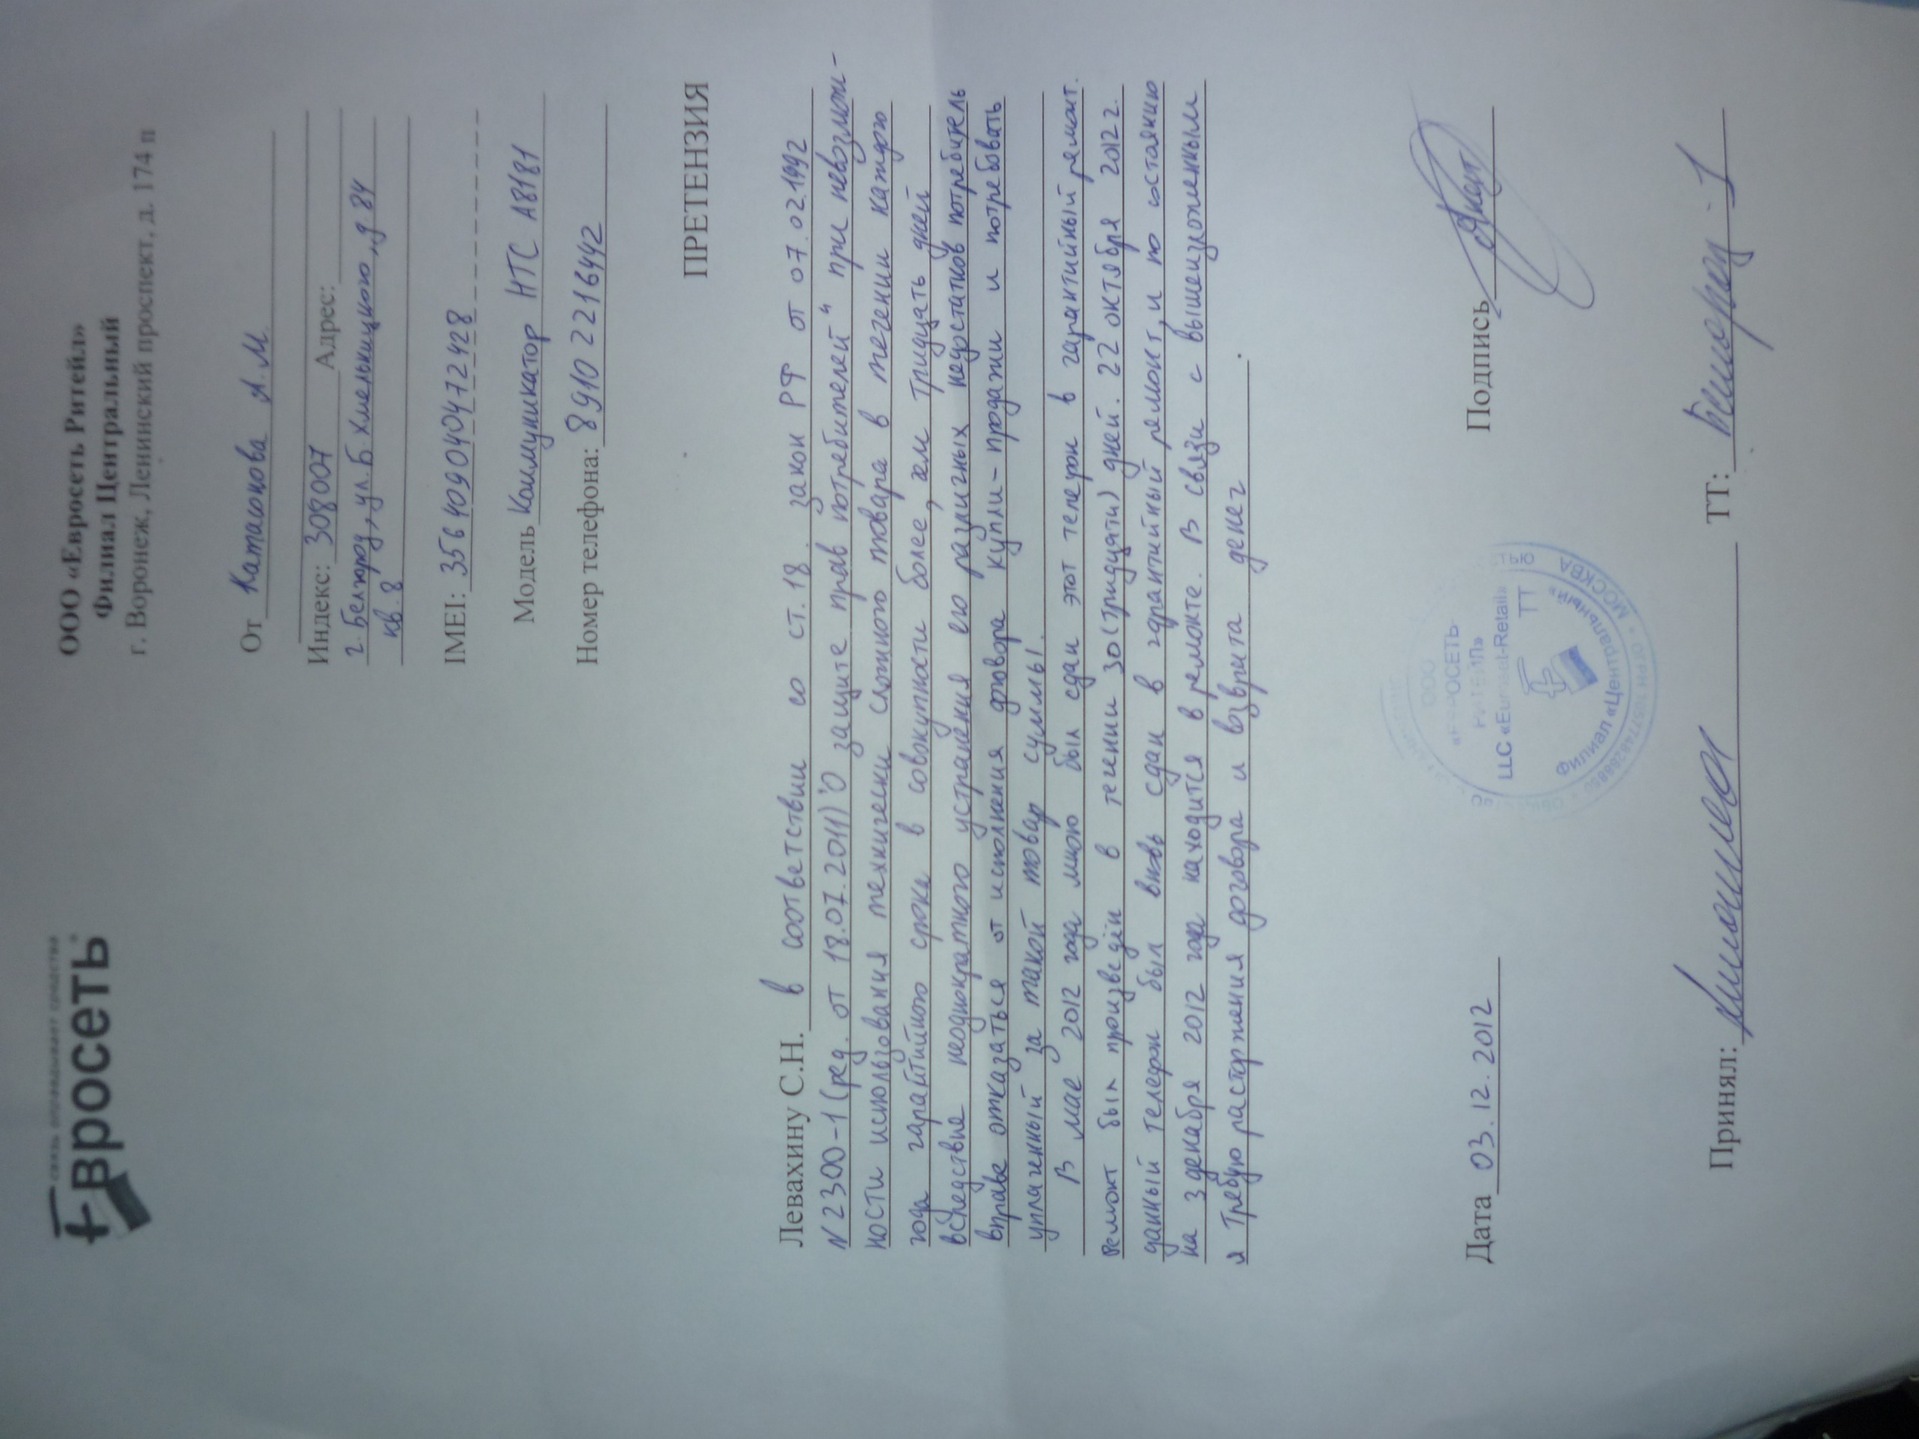 связь оправдывает средства
евросеть
ООО «Евросеть Ритейл»
Филиал Центральный
г. Воронеж, Ленинский проспект, д. 174 п
От Катасонова А.М.
Индекс: 308007 Адрес:
г. Белгород, ул. Б Хмельницкого, д 84
кв. 8
IMEI: 356409040472428
Модель Коммуникатор HTC A8181
Номер телефона: 89102216442
ПРЕТЕНЗИЯ
Левахину С.Н. в соответствии со ст. 18. закон РФ от 07.02.1992
N2300-1 (ред. от 18.07.2011) "О защите прав потребителей" при невозмож-
ности использования технически сложного товара в течении каждого
года гарантийного срока в совокупности более, чем тридцать дней
вследствие неоднократного устранения его различных недостатков потребитель
вправе отказаться от исполнения договора купли-продажи и потребовать
уплаченный за такой товар суммы.
В мае 2012 года мною был сдан этот телефон в гарантийный ремонт.
Ремонт был произведён в течении 30 (тридцати) дней. 22 октября 2012 г.
данный телефон был вновь сдан в гарантийный ремонт, и по состоянию
на 3 декабря 2012 года находится в ремонте. В связи с вышеизложенным
я требую расторжения договора и возврата денег.
Дата 03.12.2012 Подпись
ООО
«ЕВРОСЕТЬ-
РИТЕЙЛ»
LLC «Euroset-Retail»
ТТ
Филиал «Центральный»
МОСКВА
Принял: ТТ: